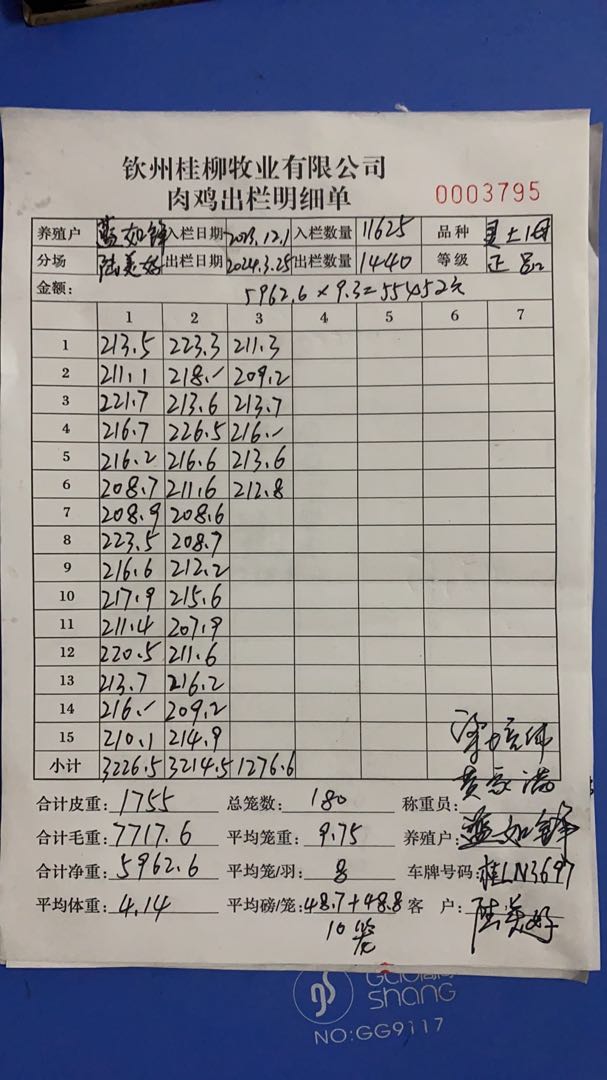 钦州桂柳牧业有限公司
肉鸡出栏明细单 0003795
养殖户 蓝如锋 入栏日期 2023.12.1 入栏数量 11625 品种
分场 陆美好 出栏日期 2024.3.25 出栏数量 1440 等级 正品
金额: 5962.6×9.3=55452元
1 2 3 4 5 6 7
1 213.5 223.3 211.3
2 211.1 218.- 209.2
3 221.7 213.6 213.7
4 216.7 226.5 216.-
5 216.2 216.6 213.6
6 208.7 211.6 212.8
7 208.9 208.6
8 223.5 208.7
9 216.6 212.2
10 217.9 215.6
11 211.4 207.9
12 220.5 211.6
13 213.7 216.2
14 216.- 209.2
15 210.1 214.9
小计 3226.5 3214.5 1276.6
合计皮重: 1755 总笼数: 180 称重员:
合计毛重: 7717.6 平均笼重: 9.75 养殖户: 蓝如锋
合计净重: 5962.6 平均笼/羽: 8 车牌号码: 桂LN3697
平均体重: 4.14 平均磅/笼: 48.7+48.8 客 户: 陆美好
10笼
shanG
NO:GG9117